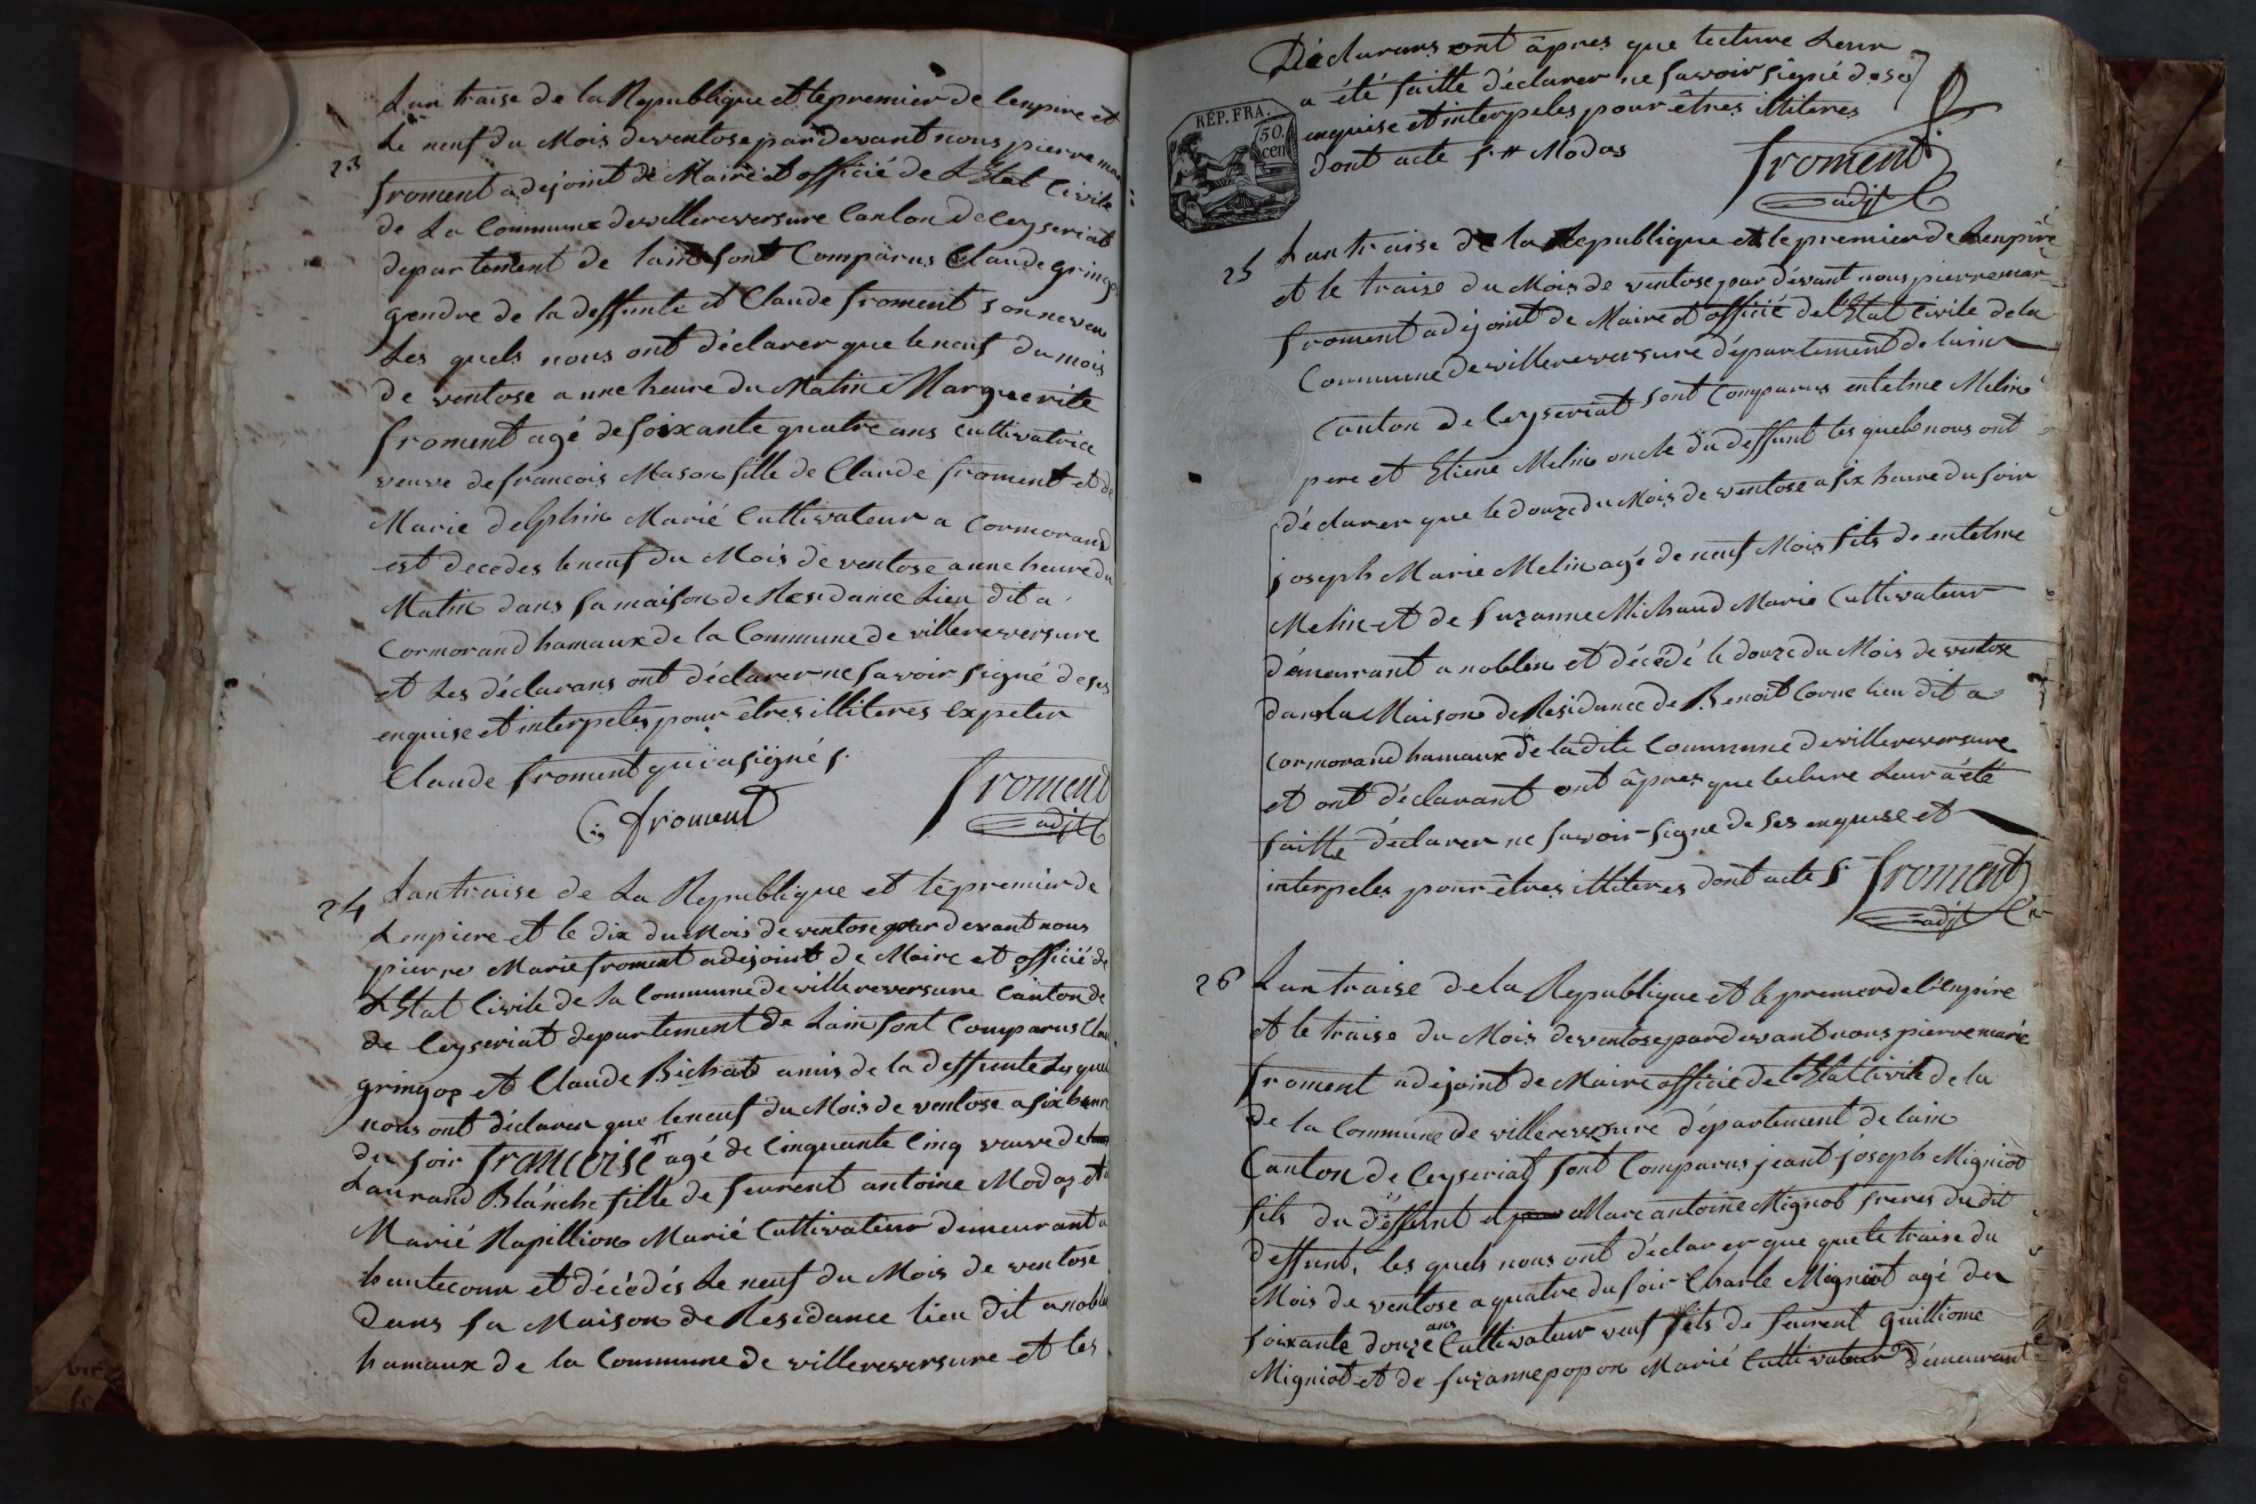 23
Lan traise de la Republique et le premier de lenpire et
Le neuf du Mois de ventose par devant nous pierre mar
froment adejoint de Maire et officié de LEtat Civile
de La Commune de villereversure Canton de Ceyseriat
departement de lain sont Comparus Claude gringo
gendre de la deffunte et Claude froment son neveu
Les quels nous ont déclarer que le neuf du mois
de ventose a une heure du Matin Marguerite
froment agé de soixante quatre ans cultivatrice
veuve de francois Mason fille de Claude froment et de
Marie delphin Marié Cultivateur a Cormorand
est decedes le neuf du Mois de ventose a une heure du
Matin dans sa maison de Residance Lieu dit a
Cormorand hamaux de la Commune de villereversure
et Les déclarans ont déclarer ne savoir signé de ses
enquise et interpeles pour êtres illiteres expeter
Claude froment qui a signé s.
C froment froment
adjt
24
Lan traise de La Republique et le premier de
Lenpiere et le dix du Mois de ventose par devant nous
pierre Marie froment adejoint de Maire et officié de
LEtat Civile de La Commune de villereversure Canton de
de Ceyseriat departement de Lain sont Comparus Clau
gringoz et Claude Bichat amis de la deffunte Lesquel
nous ont déclarer que le neuf du Mois de ventose a six heure
du soir françoise agé de Cinquante Cinq veuve de
Laurand Blanche fille de feurent antoine Modas et
Marié Rapillion Marié Cultivateur demeurant a
hautecour et décédés Le neuf du Mois de ventose
dans sa Maison de Residance lieu dit a noble
hamaux de la Commune de villereversure et les
Déclarans ont âpres que lecture Leur
a été faitte déclarer ne savoir signé de se
enquise et interpeles pour êtres illiteres
dont acte s. # Modas froment
adjt
REP. FRA.
50.
cen
25
Lan traise de la Republique et le premier de Lenpire
et le traise du Mois de ventose par dévant nous pierre mar
froment adejoint de Maire et officié de lEtat Civile de la
Commune de villereversure département de lain
Canton de Ceyseriat sont Comparus entelme Melin
pere et Etiene Melin oncle du deffunt les quels nous ont
déclarer que le douze du Mois de ventose a six heure du soir
joseph Marie Melin agé de neuf Mois fils de entelme
Melin et de suzanne Michaud Marié Cultivateur
démeurant a noblen et décédé le douze du Mois de ventose
dans la Maison de Residance de Benoit Corne lieu dit a
Cormorand hamaux de ladite Commune de villereversure
et ont déclarant ont âpres que lecture Leur a été
faitte déclarer ne savoir signe de ses enquise et
interpeles pour êtres illiteres dont acte s froment
adjt
26
Lan traise de la Republique et le premier de lenpire
et le traise du Mois de ventose par devant nous pierre marie
froment adejoint de Maire officié de lEtat Civile de la
de la Commune de villereversure département de lain
Canton de Ceyseriat sont Comparus jeant joseph Migniot
fils du deffunt et Marc antoine Mignot freres du dit
deffunt, les quels nous ont déclarer que que le traise du
Mois de ventose a quatre du soir Charle Migniot agé de
soixante douze ans Cultivateur veuf fils de feurent guilliome
Migniot et de suzanne popon Marié Cultivateur démeurant